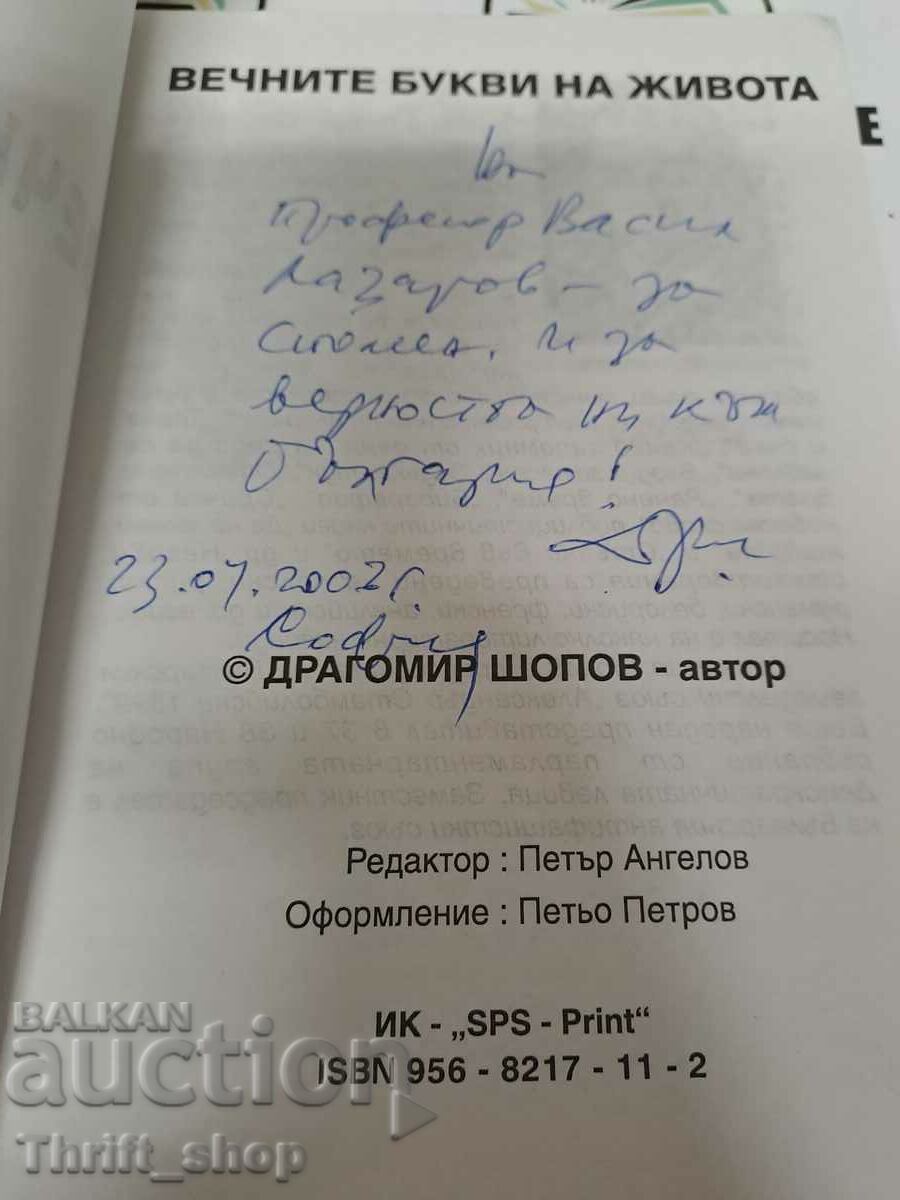 ВЕЧНИТЕ БУКВИ НА ЖИВОТА
Е
на
Професор Васил
Лазаров - за
спомен. И за
верността ни към
България!
23.07.2002г
София
© ДРАГОМИР ШОПОВ - автор
Редактор : Петър Ангелов
Оформление : Петьо Петров
ИК - „SPS - Print“
ISBN 956 - 8217 - 11 - 2
BALKAN
auction
Thrift_shop